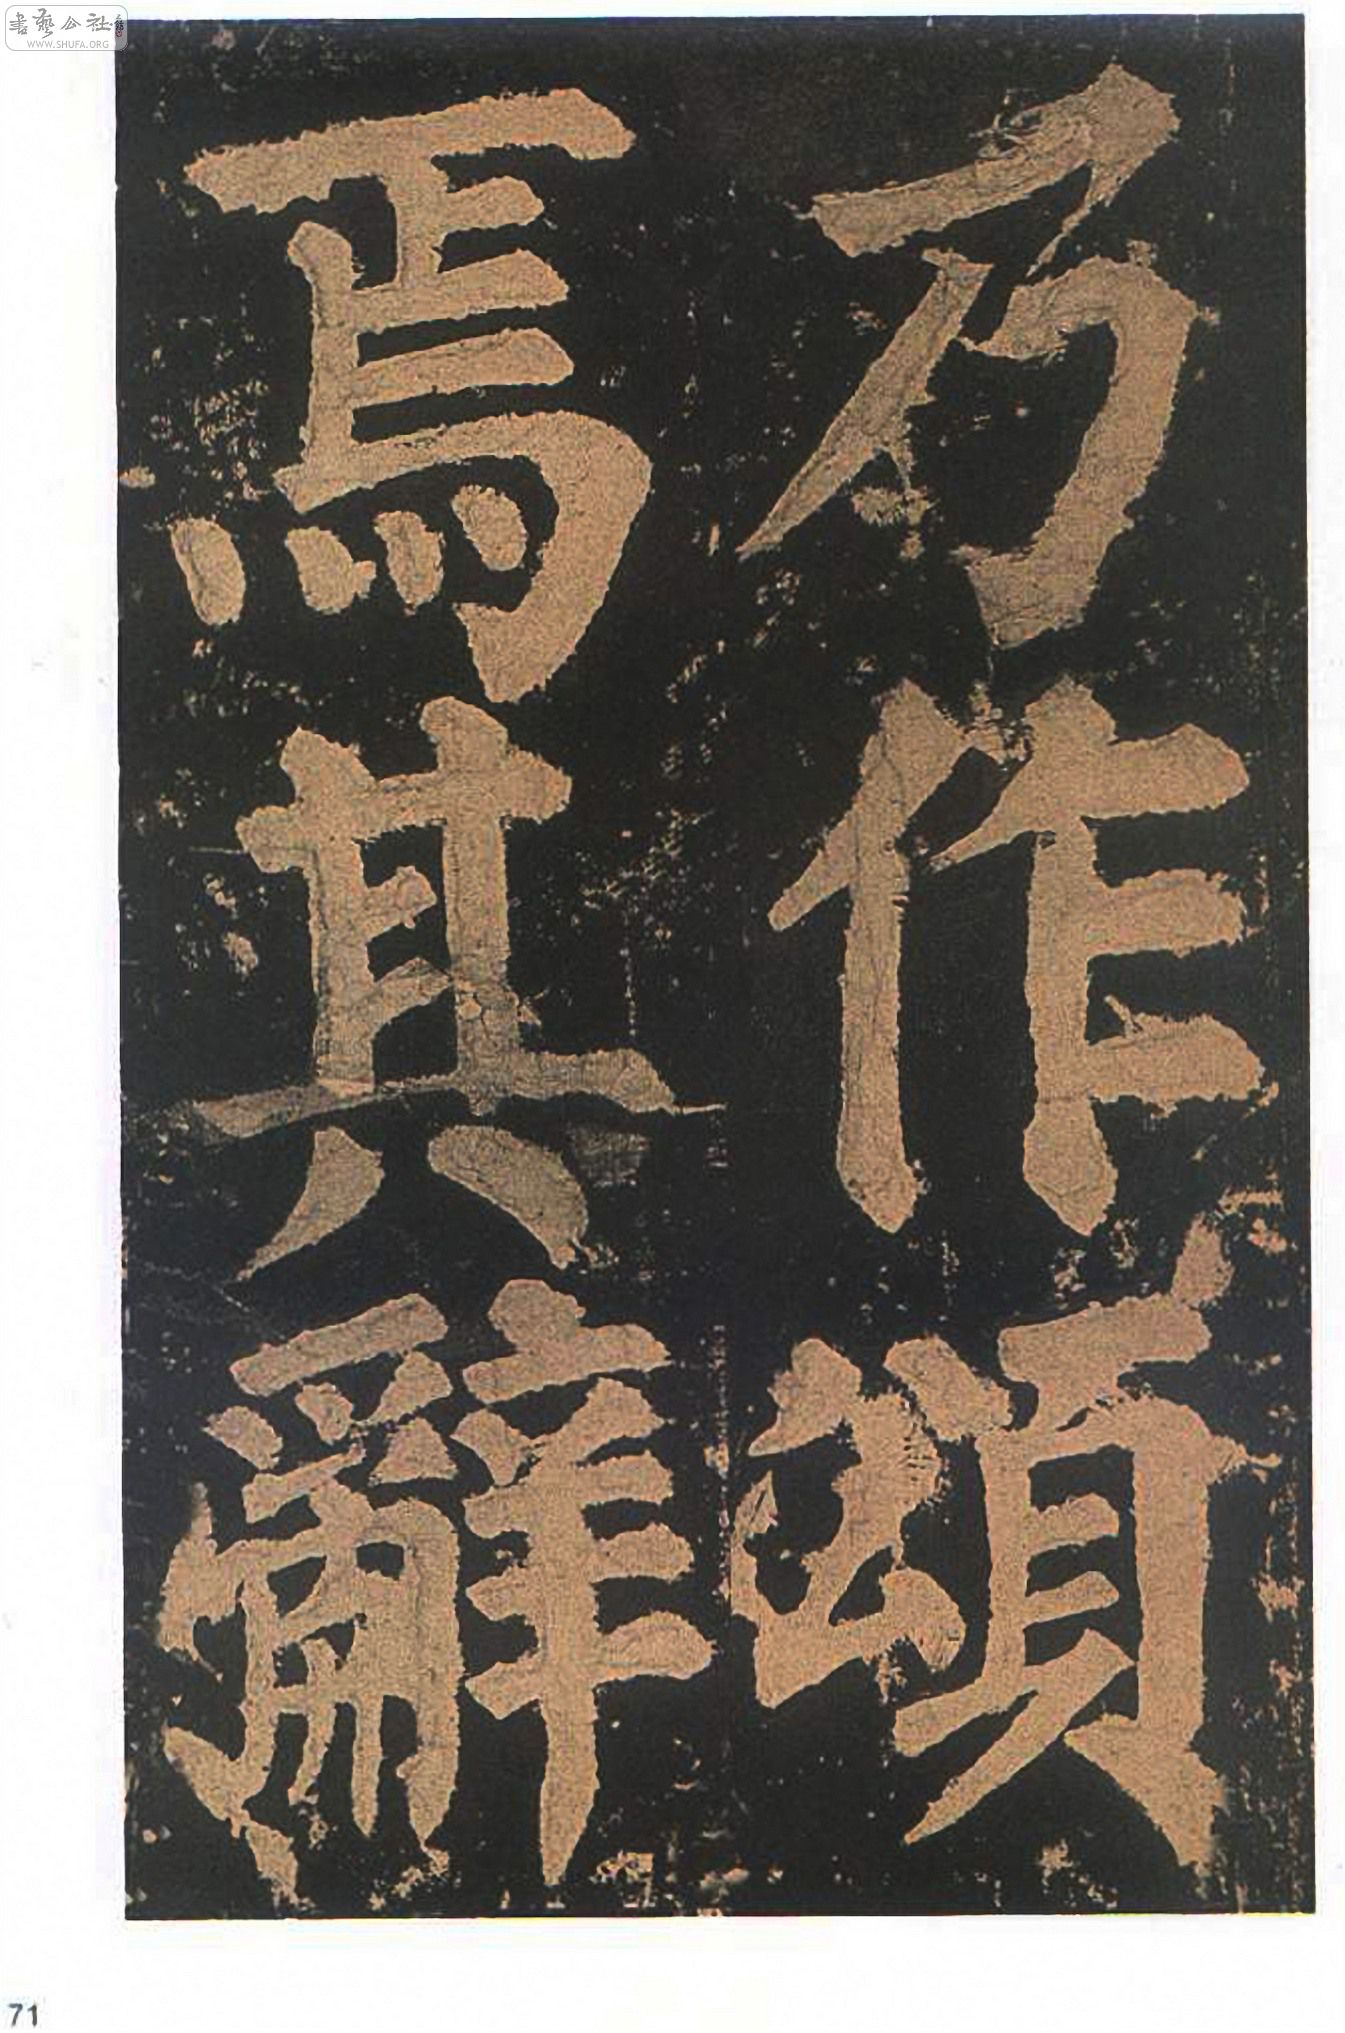 書藝公社
WWW.SHUFA.ORG
乃作頌
焉其辭
71